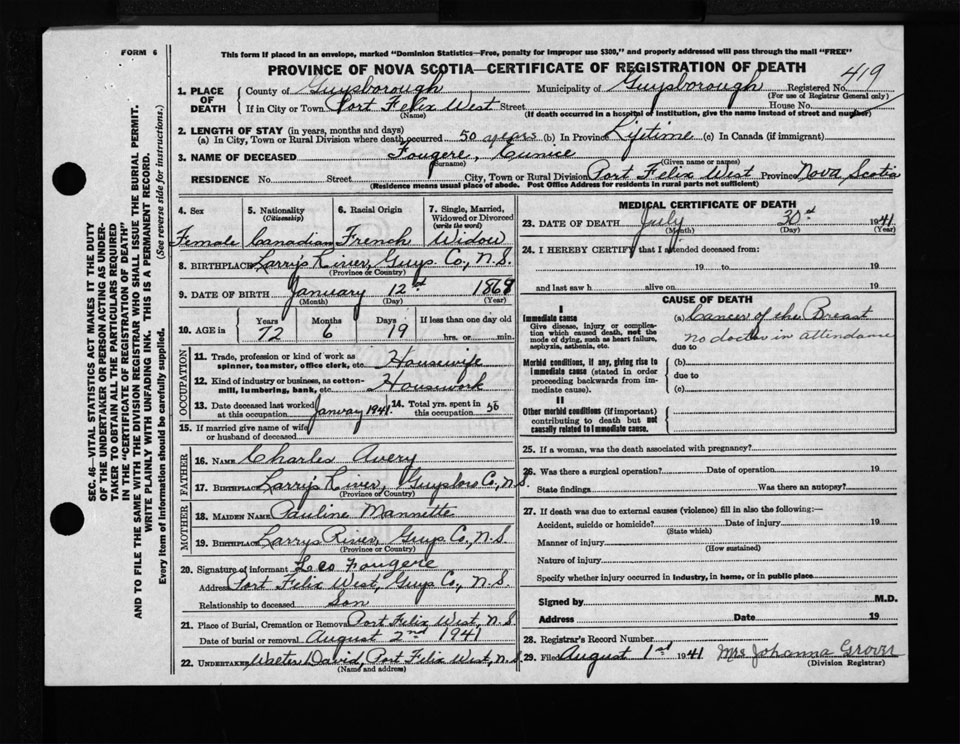 FORM 6
This form if placed in an envelope, marked "Dominion Statistics—Free, penalty for improper use $300," and properly addressed will pass through the mail "FREE"
PROVINCE OF NOVA SCOTIA—CERTIFICATE OF REGISTRATION OF DEATH
419
1. PLACE OF DEATH
County of Guysborough Municipality of Guysborough Registered No.
(For use of Registrar General only)
If in City or Town Port Felix West Street House No.
(Name) (If death occurred in a hospital or institution, give the name instead of street and number)
2. LENGTH OF STAY (in years, months and days)
(a) In City, Town or Rural Division where death occurred 50 years (b) In Province Lifetime (c) In Canada (if immigrant)
3. NAME OF DECEASED Fougere, Eunice
(Surname) (Given name or names)
RESIDENCE No. Street City, Town or Rural Division Port Felix West Province Nova Scotia
(Residence means usual place of abode. Post Office Address for residents in rural parts not sufficient)
4. Sex 5. Nationality (Citizenship) 6. Racial Origin 7. Single, Married, Widowed or Divorced (write the word)
Female Canadian French Widow
8. BIRTHPLACE Larrys River, Guys. Co., N.S.
(Province or Country)
9. DATE OF BIRTH January 12 1869
(Month) (Day) (Year)
10. AGE in Years Months Days If less than one day old
72 6 19 hrs. or min.
OCCUPATION
11. Trade, profession or kind of work as spinner, teamster, office clerk, etc. Housewife
12. Kind of industry or business, as cotton-mill, lumbering, bank, etc. Housework
13. Date deceased last worked at this occupation January 1941 14. Total yrs. spent in this occupation 50
15. If married give name of wife or husband of deceased
FATHER
16. NAME Charles Avery
17. BIRTHPLACE Larrys River, Guysboro Co., N.S.
(Province or Country)
MOTHER
18. MAIDEN NAME Pauline Mannette
19. BIRTHPLACE Larrys River, Guys Co., N.S.
(Province or Country)
20. Signature of informant Leo Fougere
Address Port Felix West, Guys Co., N.S.
Relationship to deceased Son
21. Place of Burial, Cremation or Removal Port Felix West, N.S.
Date of burial or removal August 2nd 1941
22. UNDERTAKER Walter David, Port Felix West, N.S.
(Name and address)
MEDICAL CERTIFICATE OF DEATH
23. DATE OF DEATH July 30 1941
(Month) (Day) (Year)
24. I HEREBY CERTIFY that I attended deceased from:
19 to 19
and last saw h alive on 19
CAUSE OF DEATH
I
Immediate cause
Give disease, injury or complication which caused death, not the mode of dying, such as heart failure, asphyxia, asthenia, etc.
(a) Cancer of the Breast
no doctor in attendance
due to
Morbid conditions, if any, giving rise to immediate cause (stated in order proceeding backwards from immediate cause).
(b)
due to
(c)
II
Other morbid conditions (if important) contributing to death but not causally related to immediate cause.
25. If a woman, was the death associated with pregnancy?
26. Was there a surgical operation? Date of operation 19
State findings Was there an autopsy?
27. If death was due to external causes (violence) fill in also the following:—
Accident, suicide or homicide? Date of injury 19
(State which)
Manner of injury
(How sustained)
Nature of injury
Specify whether injury occurred in industry, in home, or in public place
Signed by M.D.
Address Date 19
28. Registrar's Record Number
29. Filed August 1st 1941 Mrs Johanna Grover
(Division Registrar)
SEC. 46—VITAL STATISTICS ACT MAKES IT THE DUTY
OF THE UNDERTAKER OR PERSON ACTING AS UNDERTAKER TO OBTAIN ALL THE PARTICULARS REQUIRED
IN THE "CERTIFICATE OF REGISTRATION OF DEATH"
AND TO FILE THE SAME WITH THE DIVISION REGISTRAR WHO SHALL ISSUE THE BURIAL PERMIT.
WRITE PLAINLY WITH UNFADING INK. THIS IS A PERMANENT RECORD.
Every item of information should be carefully supplied. (See reverse side for instructions.)